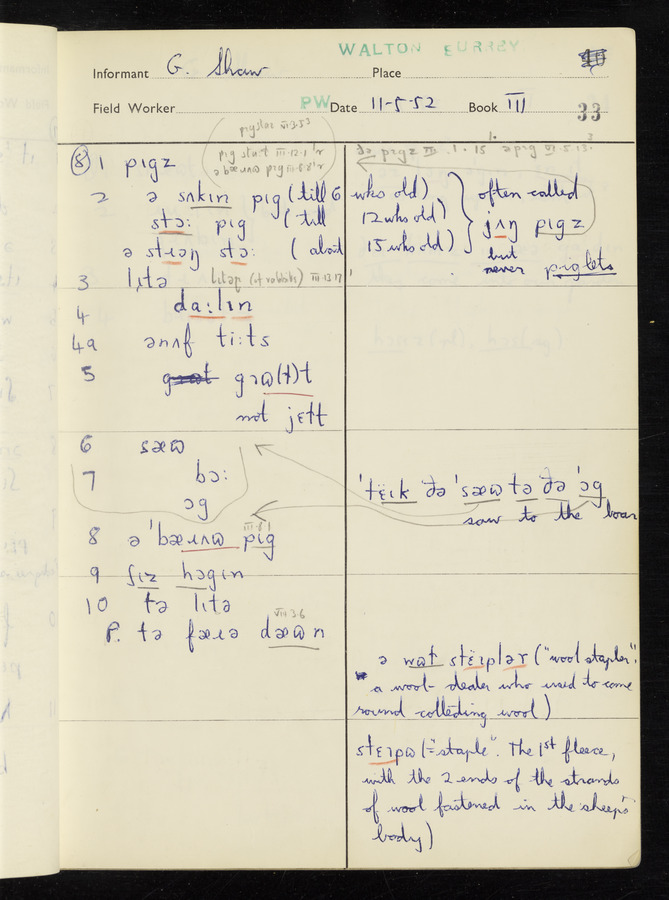 WALTON SURREY
Informant G. Shaw Place
Field Worker PW Date 11-5-52 Book III 33
pigstaz VI.13.5³
pig start III-12-1'r
ə bæɩnω pig III-8-8'r
ðə pɪgz III.1.15 ə pɪg VI.5.13.
⑧ 1 pɪgz
2 ə sʌkɪn pɪg (till 6 wks old)
stɔ: pɪg (till 12 wks old)
ə stɹɔŋ stɔ: (about 15 wks old)
often called
jʌŋ pɪgz
but
never piglets
3 lɪtə lɪtəɹ (of rabbits) III-13-17'
4 da:lɪn
4a ənʌf ti:ts
5 gɹω(t)t
not jɛtt
6 sæω
7 bɔ:
ɔg
'tëɩk ðə 'sæω tə ðə 'ɔg
saw to the boar
III-8-1
8 ə 'bæɩnω pɪg
9 ʃɪz hɔgɪn
10 tə lɪtə
VIII 3.6
P. tə fæɹə dæωn
ə wωt stëɩpləɾ ("wool stapler".
a wool-dealer who used to come
round collecting wool)
stɛɩpω (="staple". The 1st fleece,
with the 2 ends of the strands
of wool fastened in the sheep's
body)